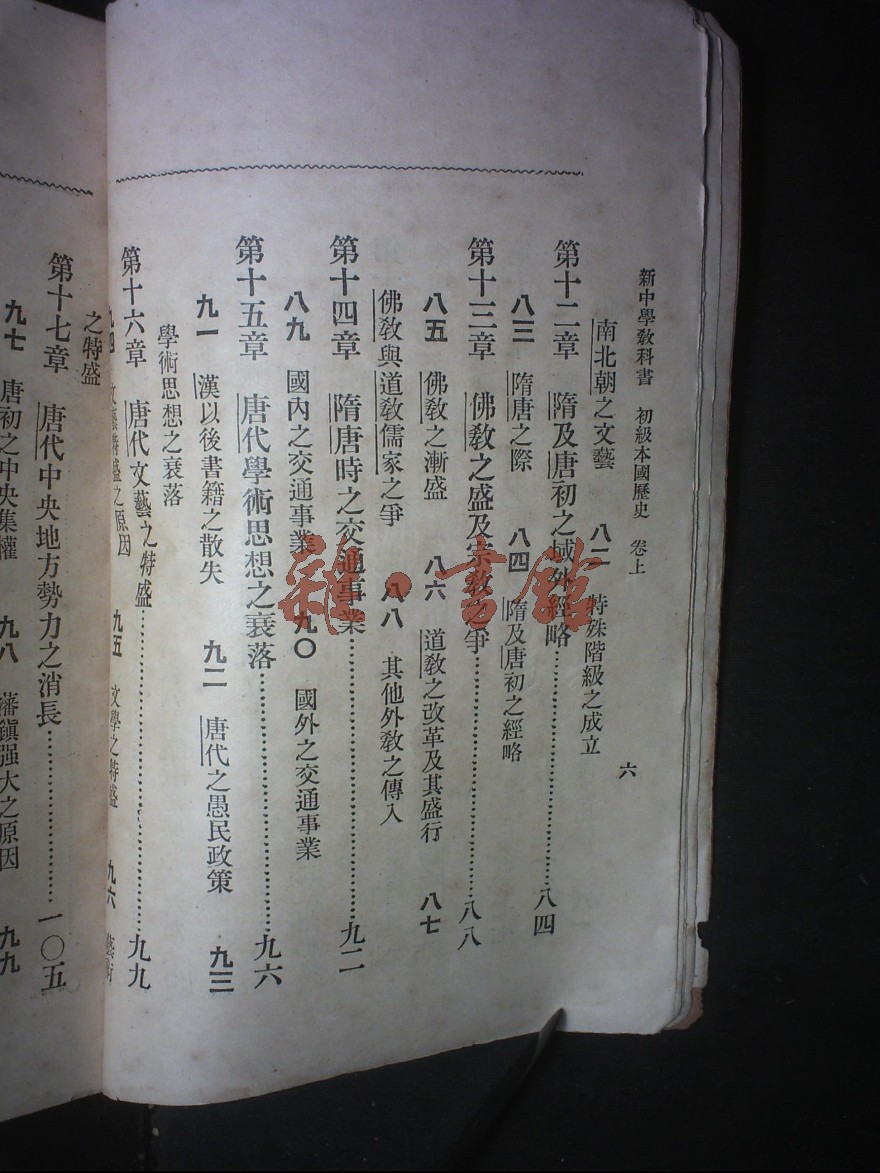 新中學敎科書　初級本國歷史　卷上　六
南北朝之文藝　八二　特殊階級之成立
第十二章　隋及唐初之域外經略……八四
八三　隋唐之際　八四　隋及唐初之經略
第十三章　佛敎之盛及宗敎之爭……八八
八五　佛敎之漸盛　八六　道敎之改革及其盛行　八七
佛敎與道敎儒家之爭　八八　其他外敎之傳入
第十四章　隋唐時之交通事業……九二
八九　國內之交通事業　九〇　國外之交通事業
第十五章　唐代學術思想之衰落……九六
九一　漢以後書籍之散失　九二　唐代之愚民政策　九三
學術思想之衰落
第十六章　唐代文藝之特盛……九九
九四　文藝特盛之原因　九五　文學之特盛　九六　藝術
之特盛
第十七章　唐代中央地方勢力之消長……一〇五
九七　唐初之中央集權　九八　藩鎭强大之原因　九九
雜·書館